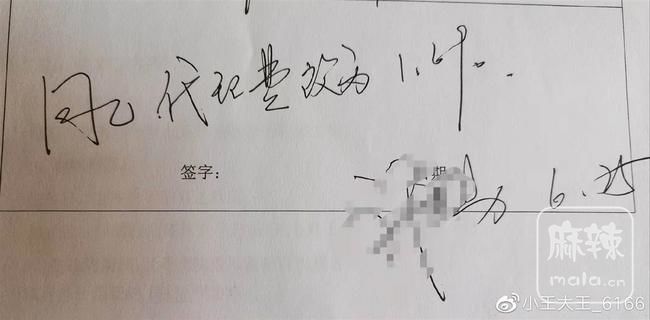 同意 代理费改为 1.6%.
签字: 期
6.25
麻辣
mala.cn
@小王大王_6166